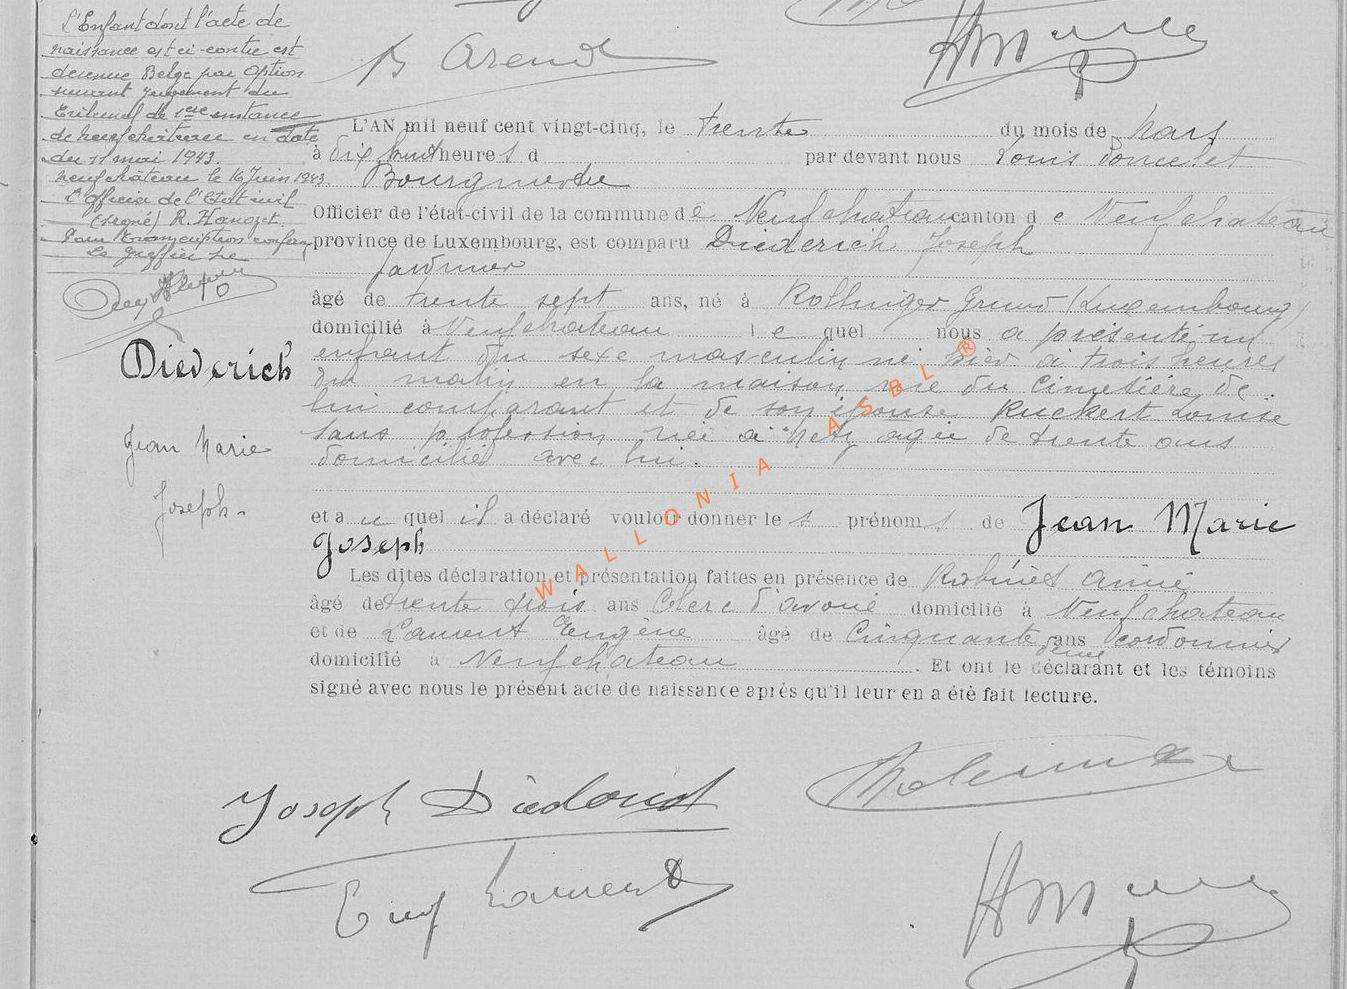 L'Enfant dont l'acte de
naissance est ci-contre est
devenue Belge par Option
suivant jugement du
Tribunal de 1ère instance
de Neufchâteau en date
du 11 mai 1943.
Neufchâteau le 16 Juin 1943.
L'officier de l'Etat civil
(signé) R. Hanozet
Pour transcription conforme
Le greffier
Diederich
Jean Marie
Joseph-
B Arend
L'AN mil neuf cent vingt-cinq, le trente du mois de Mars
à dix huit heures d par devant nous Louis Poncelet
Bourgmestre
Officier de l'état-civil de la commune de Neufchateau canton de Neufchateau
province de Luxembourg, est comparu Diederich Joseph
Jardinier
âgé de trente sept ans, né à Rollinger Grund (Luxembourg)
domicilié à Neufchateau lequel nous a présenté un
enfant du sexe masculin né hier à trois heures
du matin en la maison rue du Cimetière de
lui comparant et de son épouse Ruckert Louise
sans profession née à Metz agée de trente ans
domiciliée avec lui.
et au quel il a déclaré vouloir donner les prénoms de Jean Marie
Joseph
Les dites déclaration et présentation faites en présence de Robinet Aimé
âgé de trente trois ans Clerc d'avoué domicilié à Neufchateau
et de Laurent Eugène âgé de Cinquante deux ans cordonnier
domicilié à Neufchateau. Et ont le déclarant et les témoins
signé avec nous le présent acte de naissance après qu'il leur en a été fait lecture.
WALLONIA ASBL ®
Joseph Diederich
Eug Laurent